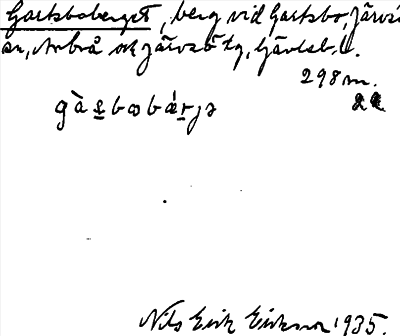 Gaetsboberget, berg vid Gaetsbo, Järvsö
sn, Arbrå och Järvsö tg, Gävleb. l.
298 m.
gàs̲bobær̲jə
Nils Erik Eriksson 1935.